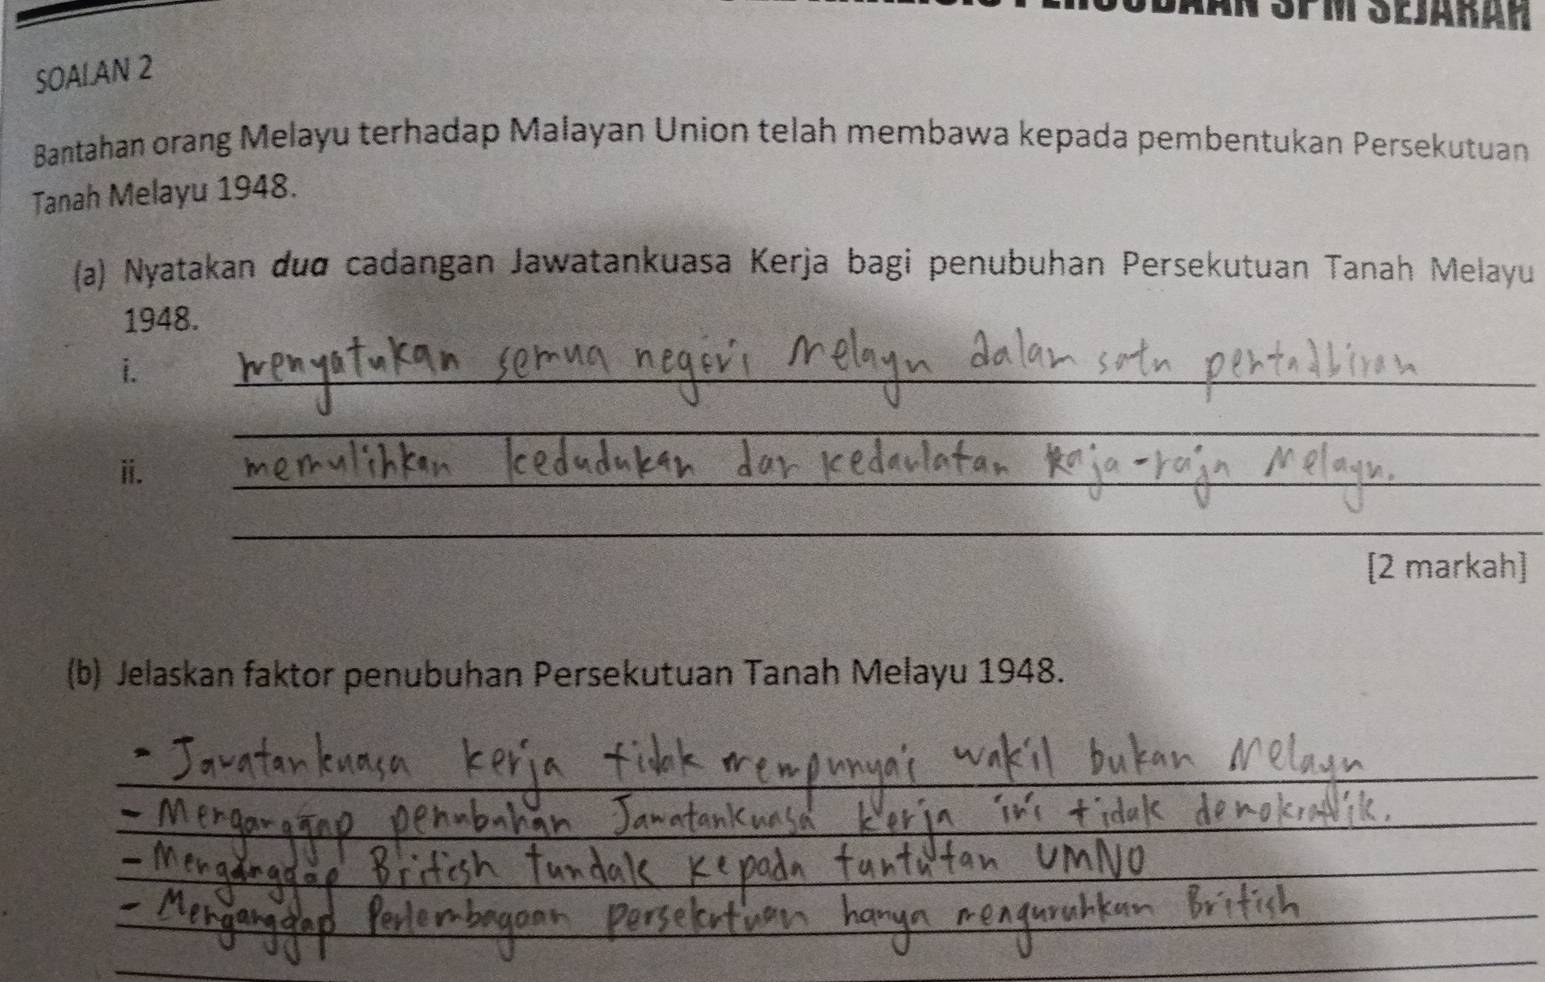 SPM SEJARAH
SOALAN 2
Bantahan orang Melayu terhadap Malayan Union telah membawa kepada pembentukan Persekutuan
Tanah Melayu 1948.
(a) Nyatakan dua cadangan Jawatankuasa Kerja bagi penubuhan Persekutuan Tanah Melayu
1948.
i. menyatukan semua negeri Melayu dalam satu pentadbiran
ii. memulihkan kedudukan dan kedaulatan Raja-raja Melayu.
[2 markah]
(b) Jelaskan faktor penubuhan Persekutuan Tanah Melayu 1948.
- Jawatankuasa kerja tidak mempunyai wakil bukan Melayu
- Menganggap penubuhan Jawatankuasa kerja ini tidak demokratik.
- Menganggap British tunduk kepada tuntutan UMNO
- Menganggap Perlembagaan persekutuan hanya menguruhkan British